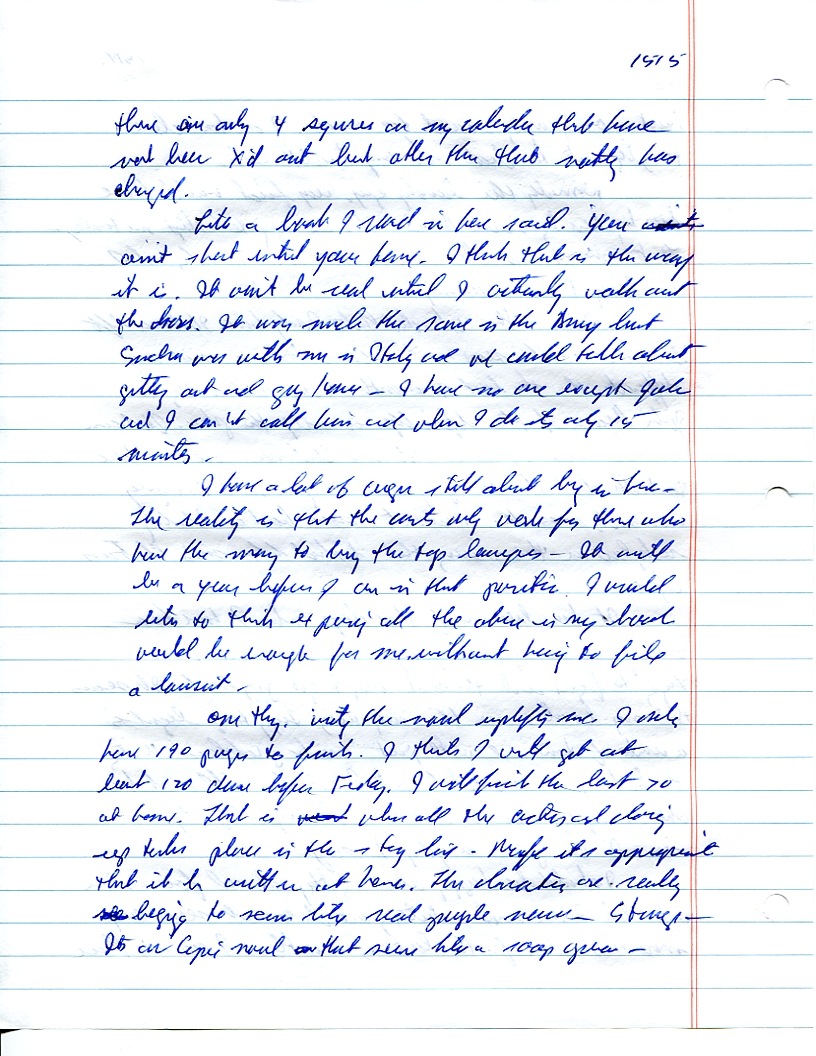 1515
there are only 4 squares on my calendar that have
not been X'd out but other than that nothing has
changed.
Like a book I read in here said. You
ain't short until your home. I think that is the way
it is. It won't be real until I actually walk out
the doors. It was much the same in the Army but
Sandra was with me in Italy and we could talk about
getting out and going home – I have no one except
and I can't call him and when I do its only 15
minutes.
I have a lot of anger still about being in here –
The reality is that the courts only work for those who
have the money to buy the top lawyers – It will
be a year before I am in that position. I would
like to think exposing all the abuse in my book
would be enough for me without having to file
a lawsuit.
One thing, writing the novel uplifts me. I only
have 190 pages to finish. I think I will get at
least 120 done before Friday. I will finish the last 70
at home. That is when all the action and closing
up takes place in the story line – Maybe its appropriate
that it be written at home. The characters are really
beging to seem like real people now – Strange –
Its an Epic novel that seems like a soap opera –